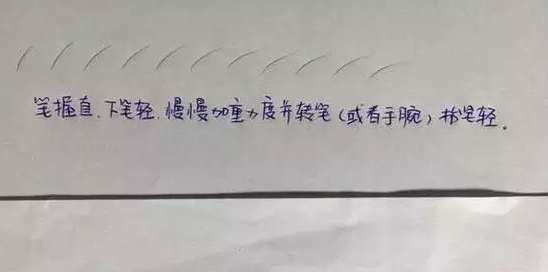 笔握直,下笔轻,慢慢加重力度并转笔(或者手腕),抬笔轻。